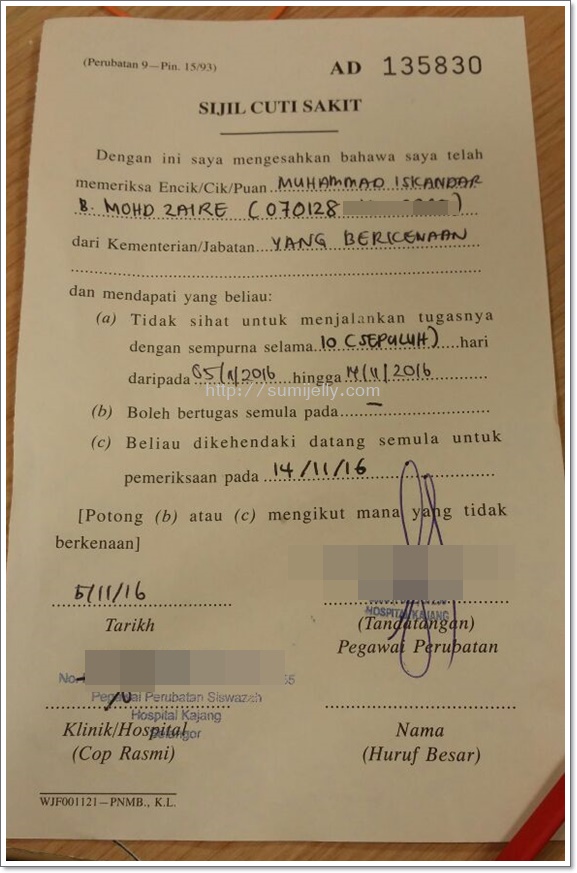 (Perubatan 9—Pin. 15/93)
AD 135830
SIJIL CUTI SAKIT
Dengan ini saya mengesahkan bahawa saya telah
memeriksa Encik/Cik/Puan MUHAMMAD ISKANDAR
B. MOHD ZAIRE (070128 )
dari Kementerian/Jabatan YANG BERKENAAN
dan mendapati yang beliau:
(a) Tidak sihat untuk menjalankan tugasnya
dengan sempurna selama 10 (SEPULUH) hari
daripada hingga
http://sumijelly.com/
(b) Boleh bertugas semula pada –
(c) Beliau dikehendaki datang semula untuk
pemeriksaan pada 14/11/16
[Potong (b) atau (c) mengikut mana yang tidak
berkenaan]
5/11/16
HOSPITAL KAJANG
Tarikh
(Tandatangan)
Pegawai Perubatan
No.
55
Pegawai Perubatan Siswazah
Hospital Kajang
Selangor
Klinik/Hospital
(Cop Rasmi)
Nama
(Huruf Besar)
WJF001121—PNMB., K.L.